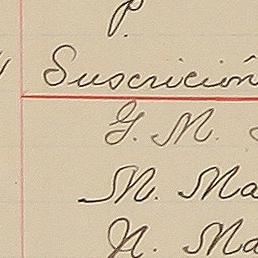 p.
Suscrición
G. M.
M. Ma
N. Ma